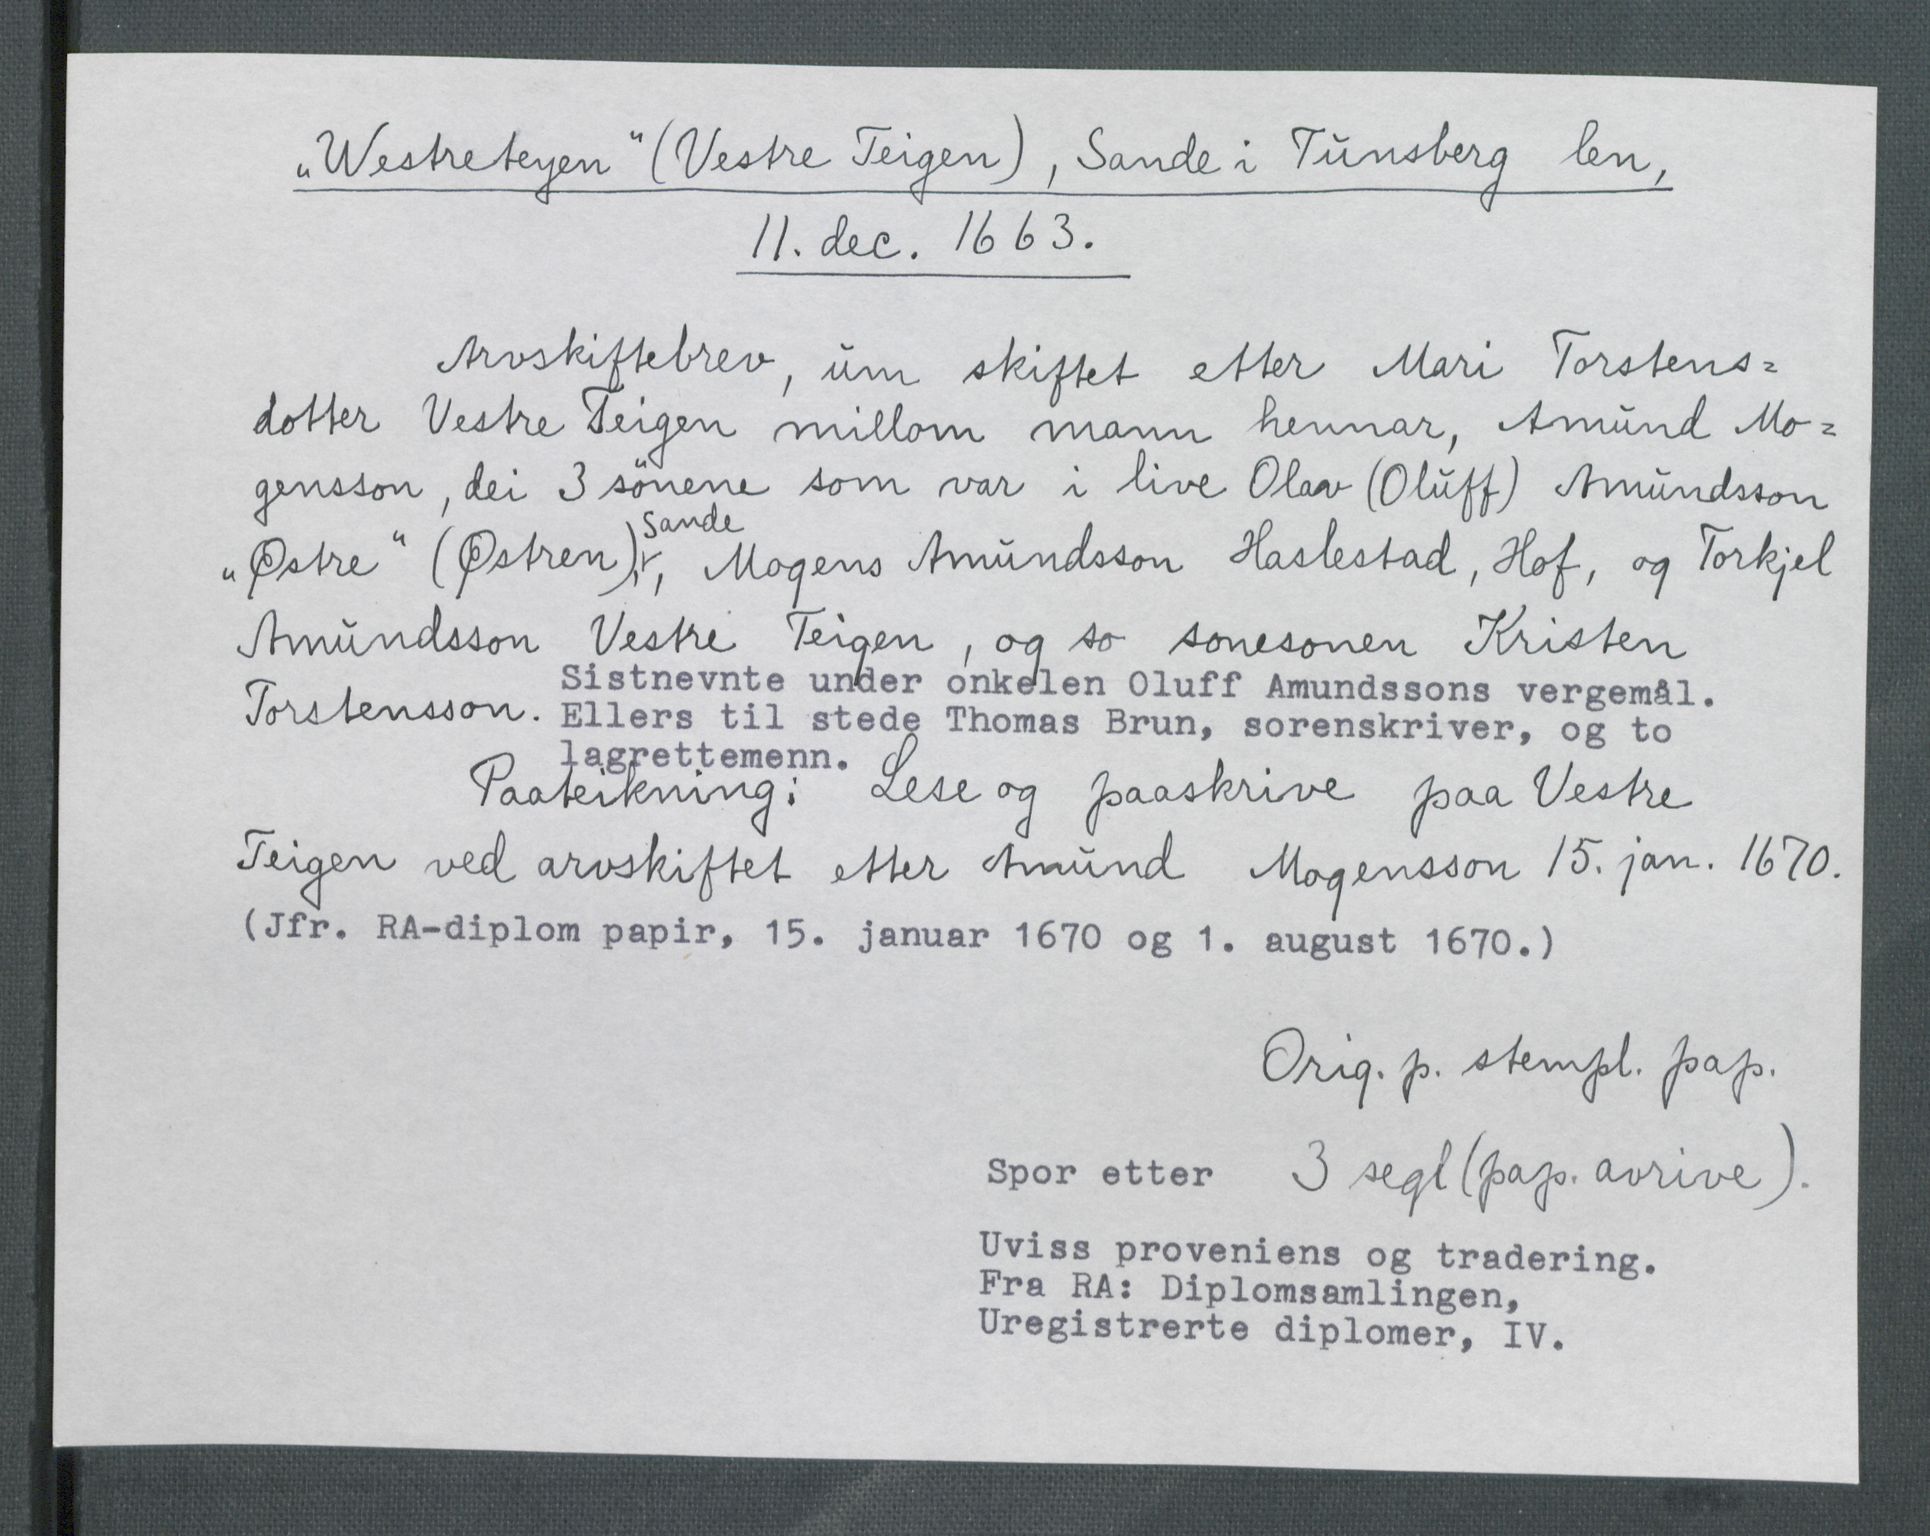 „Westreteyen“ (Vestre Teigen), Sande i Tŭnsberg len,
11. dec. 1663.
Arvskiftebrev, ŭm skiftet etter Mari Torstens=
dotter Vestre Teigen millom mann hennar, Amŭnd Mo=
gensson, dei 3 sönene som var i live Olav (Olŭff) Amŭndsson
Sande
„Østre“ (Østren), Mogens Amŭndsson Haslestad, Hof, og Torkjel
Amŭndsson Vestre Teigen, og so sonesonen Kristen
Sistnevnte under onkelen Oluff Amundssons vergemål.
Torstensson. Ellers til stede Thomas Brun, sorenskriver, og to
lagrettemenn.
Paateikning: Lese og paaskrive paa Vestre
Teigen ved arvskiftet etter Amŭnd Mogensson 15. jan. 1670.
(Jfr. RA-diplom papir, 15. januar 1670 og 1. august 1670.)
Orig. p. stempl. pap.
Spor etter 3 segl (pap. avrive).
Uviss proveniens og tradering.
Fra RA: Diplomsamlingen,
Uregistrerte diplomer, IV.